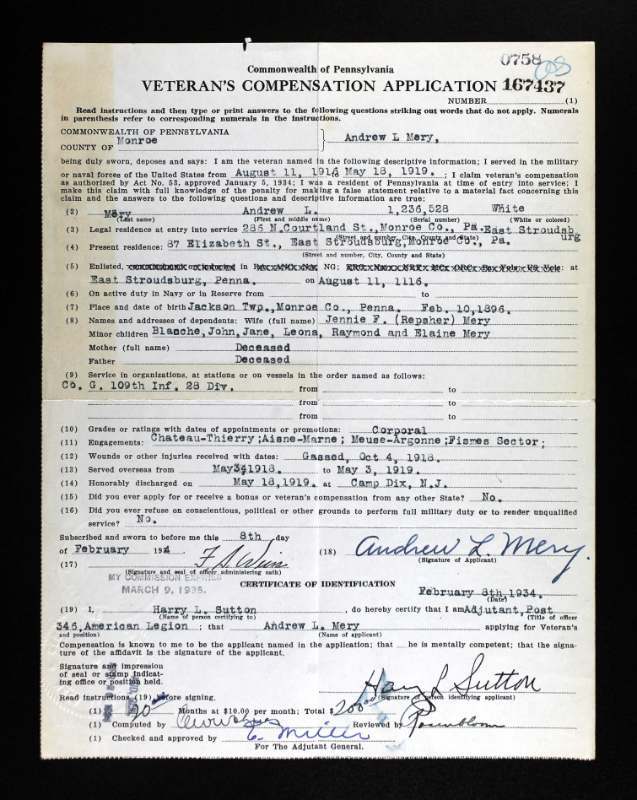 0758
Commonwealth of Pennsylvania
VETERAN'S COMPENSATION APPLICATION 167437
NUMBER (1)
Read instructions and then type or print answers to the following questions striking out words that do not apply. Numerals
in parenthesis refer to corresponding numerals in the instructions.
COMMONWEALTH OF PENNSYLVANIA
COUNTY OF Monroe } Andrew L Mery,
being duly sworn, deposes and says: I am the veteran named in the following descriptive information; I served in the military
or naval forces of the United States from August 11, 1916 May 18, 1919. ; I claim veteran's compensation
as authorized by Act No. 53, approved January 5, 1934; I was a resident of Pennsylvania at time of entry into service; I
make this claim with full knowledge of the penalty for making a false statement relative to a material fact concerning this
claim and the answers to the following questions and descriptive information are true:
(2) Mery Andrew L. 1,236,528 White
(Last name) (First and middle name) (Serial number) (White or colored)
(3) Legal residence at entry into service 286 N.Courtland St.,Monroe Co., Pa. East Stroudsb
urg
(Street and number, City, County and State)
(4) Present residence: 87 Elizabeth St., East Stroudsburg,Monroe Co., Pa.
(Street and number, City, County and State)
(5) Enlisted, in NG; at
East Stroudsburg, Penna. on August 11, 1116.
(6) On active duty in Navy or in Reserve from to
(7) Place and date of birth Jackson Twp.,Monroe Co., Penna. Feb. 10,1896.
(8) Names and addresses of dependents: Wife (full name) Jennie F. (Repsher) Mery
Minor children Blanche,John,Jane, Leona, Raymond and Elaine Mery
Mother (full name) Deceased
Father Deceased
(9) Service in organizations, at stations or on vessels in the order named as follows:
Co. G. 109th Inf. 28 Div. from to
from to
from to
(10) Grades or ratings with dates of appointments or promotions: Corporal
(11) Engagements: Chateau-Thierry;Aisne-Marne; Meuse-Argonne;Fismes Sector;
(12) Wounds or other injuries received with dates: Gassed, Oct 4, 1918.
(13) Served overseas from May 1918. to May 3, 1919.
(14) Honorably discharged on May 18,1919. at Camp Dix, N.J.
(15) Did you ever apply for or receive a bonus or veteran's compensation from any other State? No.
(16) Did you ever refuse on conscientious, political or other grounds to perform full military duty or to render unqualified
service? No.
Subscribed and sworn to before me this 8th day
of February
(17) (18) Andrew L. Mery.
(Signature and seal of officer administering oath) (Signature of Applicant)
MY COMMISSION EXPIRES
MARCH 9, 1935.
CERTIFICATE OF IDENTIFICATION
February 8th,1934.
(Date)
(19) I, Harry L. Sutton , do hereby certify that I am Adjutant,Post
(Name of person certifying to) (Title of officer
346,American Legion ; that Andrew L. Mery applying for Veteran's
and position) (Name of applicant)
Compensation is known to me to be the applicant named in the application; that he is mentally competent; that the
signature of the affidavit is the signature of the applicant.
Signature and impression
of seal or stamp indicat-
ing office or position held.
Harry L Sutton
(Signature of person identifying applicant)
Read instructions (19) before signing.
(1) 20 Months at $10.00 per month; Total $ 200
(1) Computed by Reviewed by Rosenbloom
(1) Checked and approved by E. Miller
For The Adjutant General.